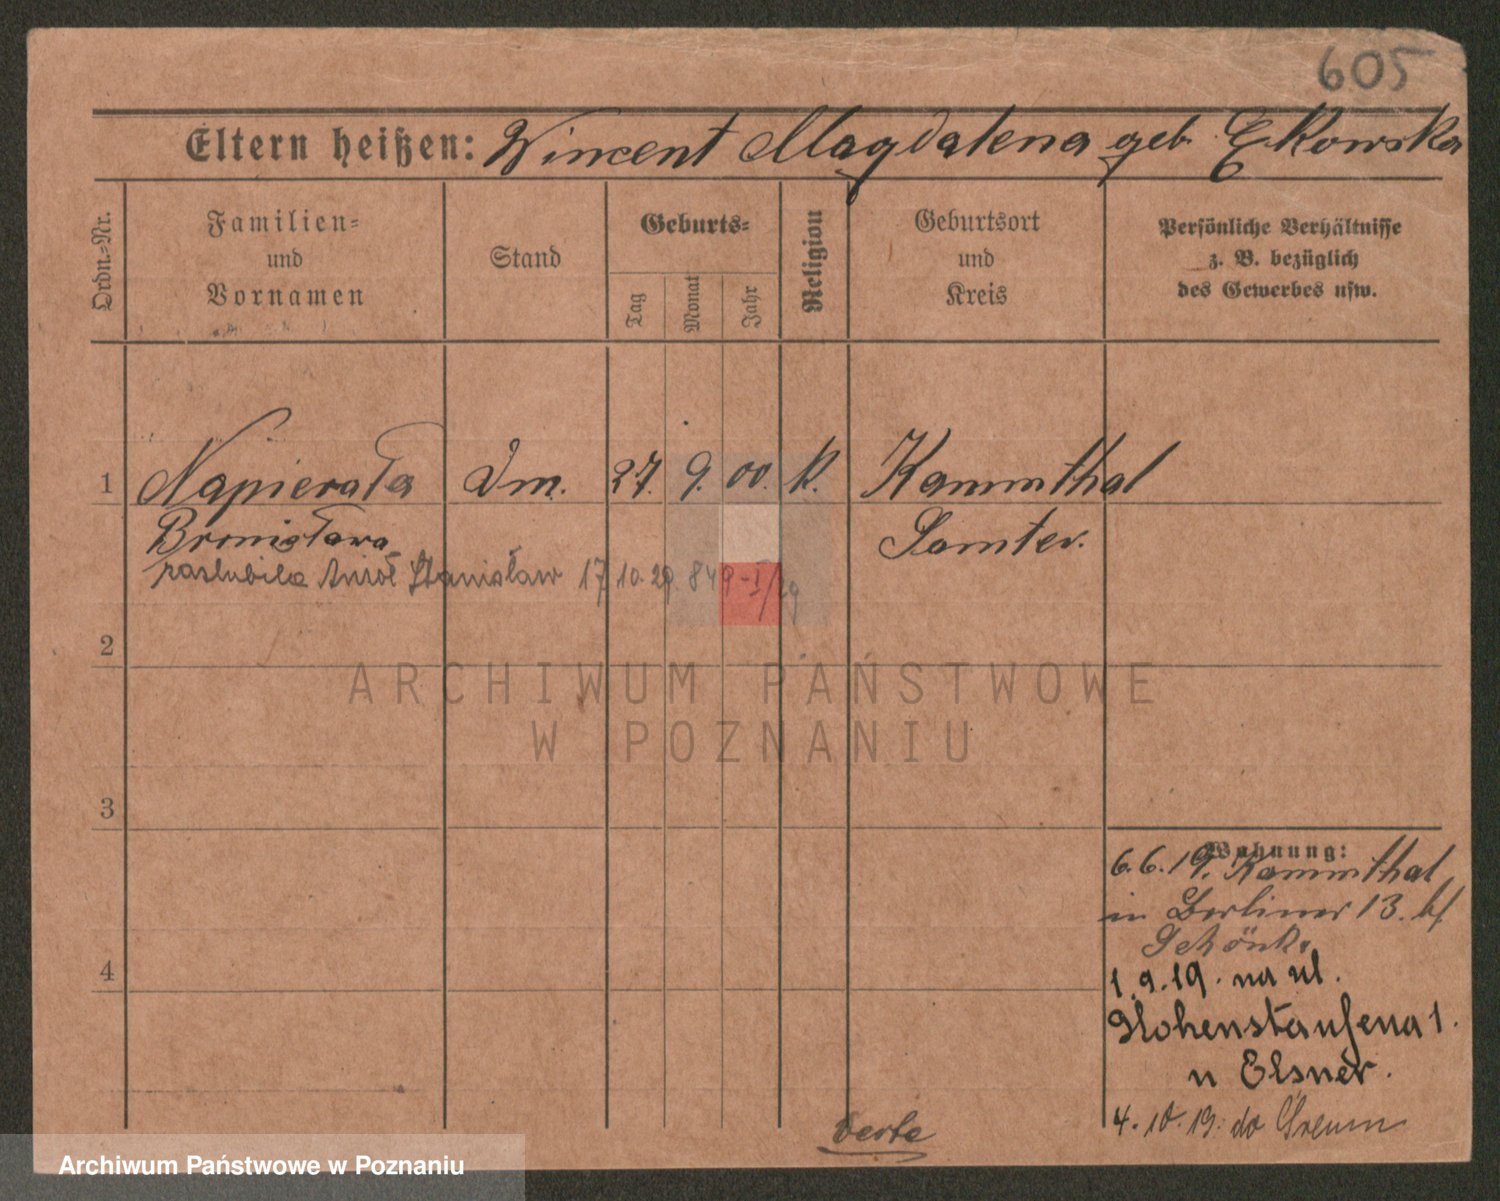 605
Eltern heißen: Wincent Magdalena geb. Ćkowska
Ordn.-Nr.
Familien-
und
Vornamen
Stand
Geburts-
Tag
Monat
Jahr
Religion
Geburtsort
und
Kreis
Persönliche Verhältnisse
z. B. bezüglich
des Gewerbes usw.
1 Napierała Dm. 27. 9. 00. k. Kammthal
Bronisława Samter.
zaślubiła Anioł Stanisław 17 10. 29. 849-I/29
2
ARCHIWUM PAŃSTWOWE
W POZNANIU
3
Wohnung:
6.6.19. Kammthal
in Berliner 13. bf
Schönk.
4
1.9.19. na ul.
Hohenstaufena 1.
u Elsner.
4.10.19. do
verte
Archiwum Państwowe w Poznaniu